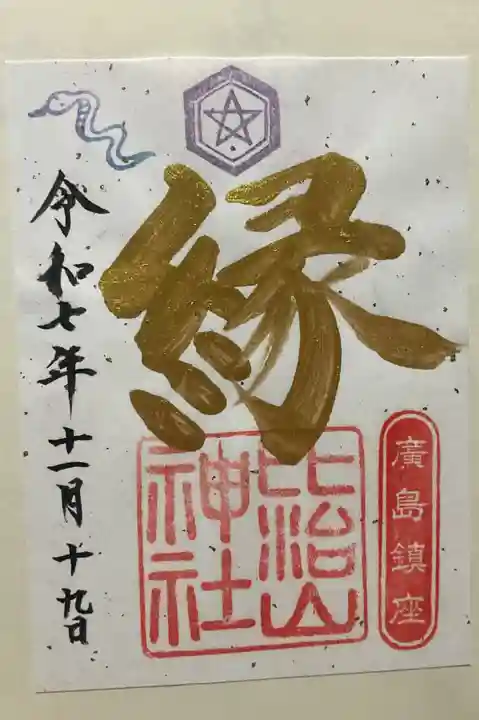 縁
廣島鎮座
比治山
神社
令和七年十一月十九日